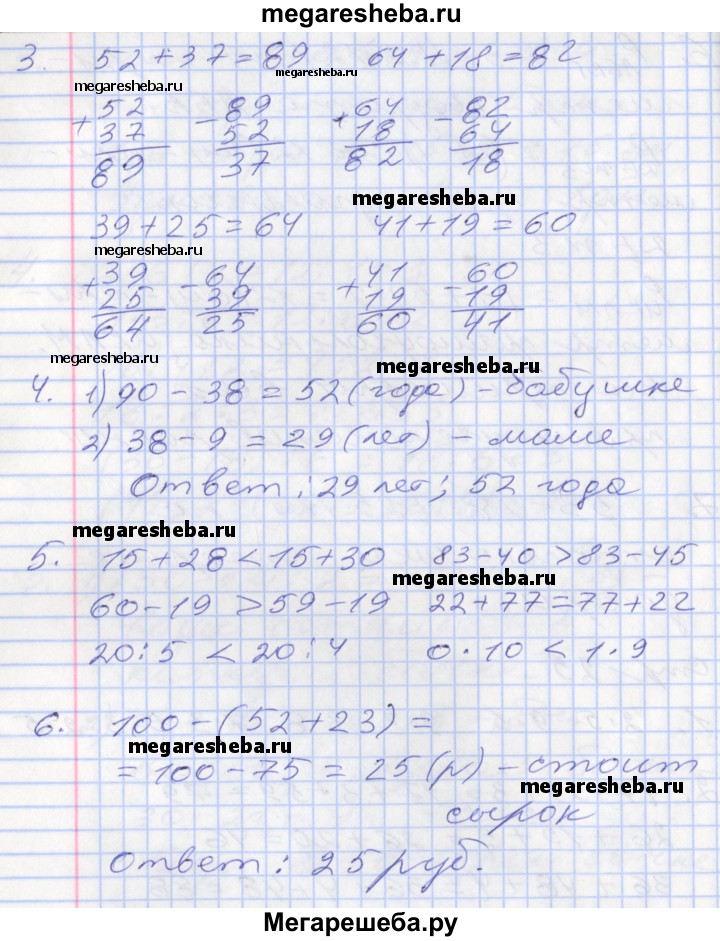 megaresheba.ru
3. 52+37=89 64+18=82
megaresheba.ru megaresheba.ru
+52 -89 +64 -82
37 52 18 64
89 37 82 18
megaresheba.ru
39+25=64 41+19=60
megaresheba.ru
+39 -64 +41 -60
25 39 19 19
64 25 60 41
megaresheba.ru megaresheba.ru
4. 1) 90-38=52(года)-бабушке
2) 38-9=29(лет)-маме
Ответ: 29 лет; 52 года
megaresheba.ru
5. 15+28<15+30 83-40>83-45
megaresheba.ru
60-19>59-19 22+77=77+22
20:5<20:4 0·10<1·9
6. 100-(52+23)=
megaresheba.ru
=100-75=25(р)-стоит
megaresheba.ru
сырок
Ответ: 25 руб.
Мегарешеба.ру